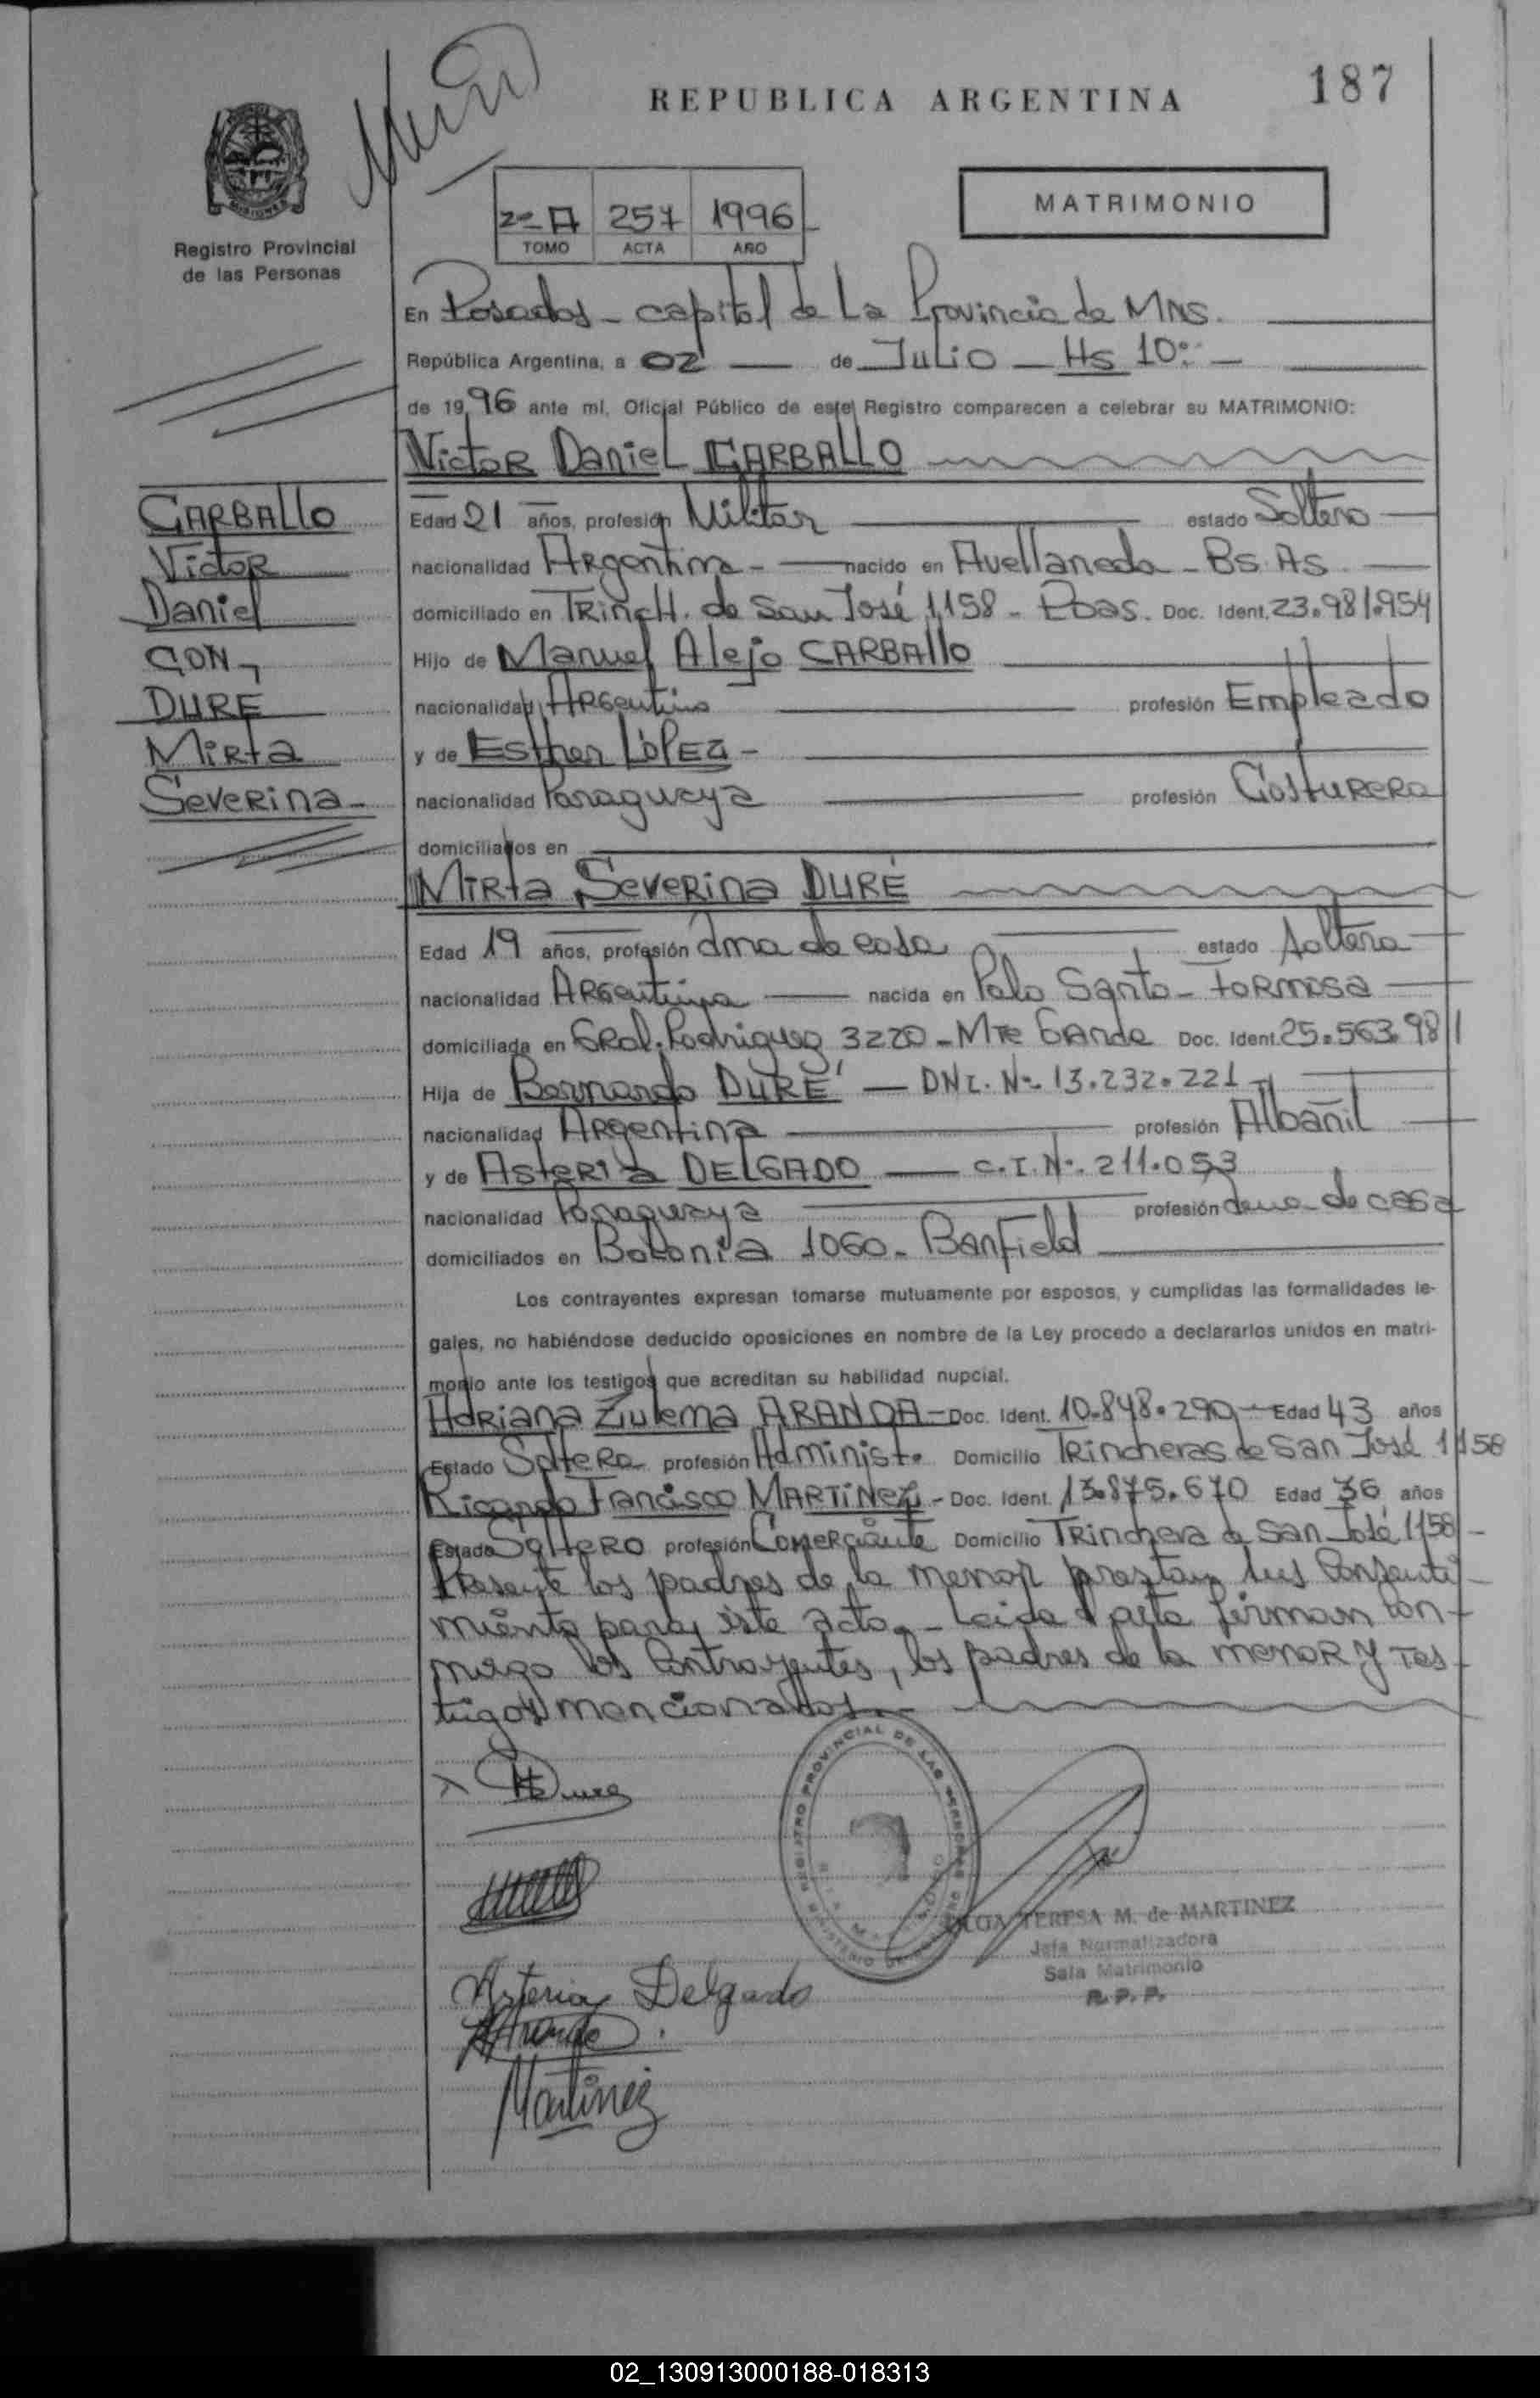 REPUBLICA ARGENTINA
187
MISIONES
Registro Provincial
de las Personas
2º A 257 1996
TOMO ACTA AÑO
MATRIMONIO
En Posadas - capital de La Provincia de MNS.
República Argentina, a 02 de Julio - Hs 10:-
de 1996 ante mí, Oficial Público de este Registro comparecen a celebrar su MATRIMONIO:
Victor Daniel CARBALLO
CARBALLO
Victor
Daniel
CON
DURE
Mirta
Severina-
Edad 21 años, profesión Militar estado Soltero
nacionalidad Argentina - nacido en Avellaneda - BS.AS.
domiciliado en TRinCH. de San José 1158 - Pdas. Doc. Ident. 23.981.954
Hijo de Manuel Alejo CARBAllo
nacionalidad ARgentino profesión Empleado
y de Esther LÓPEZ -
nacionalidad Paraguaya profesión Costurera
domiciliados en
Mirta Severina DURÉ
Edad 19 años, profesión ama de casa estado soltera
nacionalidad ARgentina nacida en Palo Santo - FORMOSA
domiciliada en GRal. Rodriguez 3220 - MTe GRande Doc. Ident. 25.563.981
Hija de Bernardo DURÉ - DNI. Nº 13.232.221
nacionalidad Argentina profesión Albañil
y de Asteria DELGADO - C.I.Nº. 211.053
nacionalidad Paraguaya profesión de casa
domiciliados en 1060 - BanField
Los contrayentes expresan tomarse mutuamente por esposos, y cumplidas las formalidades le-
gales, no habiéndose deducido oposiciones en nombre de la Ley procedo a declararlos unidos en matri-
monio ante los testigos que acreditan su habilidad nupcial.
Adriana Zulema ARANDA - Doc. Ident. 10.848.290 - Edad 43 años
Estado Soltera profesión Administ. Domicilio Trincheras de San José 1158
Ricardo Francisco MARTINEZ - Doc. Ident. 13.875.670 Edad 36 años
Estado Soltero profesión Comerciante Domicilio TRinchera de San José 1158
Presente los padres de la menor prestan sus Consenti-
miento para este acto. - Leida el acta firman con-
migo los Contrayentes, los padres de la menor y Tes-
tigos mencionados.-
Dure
REGISTRO PROVINCIAL DE LAS PERSONAS
TERESA M. de MARTINEZ
Jefa Normalizadora
Sala Matrimonio
R. P. P.
Asteria Delgado
Martinez
02_130913000188-018313